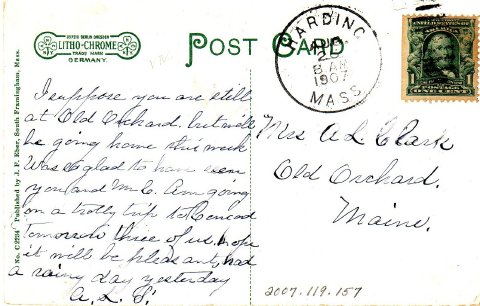 NEW YORK BERLIN DRESDEN
LITHO-CHROME
TRADE MARK
GERMANY.
POST CARD
HARDING
AUG
8 AM
1907
MASS
UNITED STATES OF AMERICA
POSTAGE
ONE CENT
No. C2234 Published by J. F. Eber, South Framingham, Mass.
I suppose you are still
at Old Orchard. but will
be going home this week
Was glad to have seen
you and Mr C. Am going
on a trolly trip to Concord
tomorrow three of us. hope
it will be pleasant, had
a rainy day yesterday
A. L. S.
Mrs A L Clark
Old Orchard.
Maine.
2007.119.157